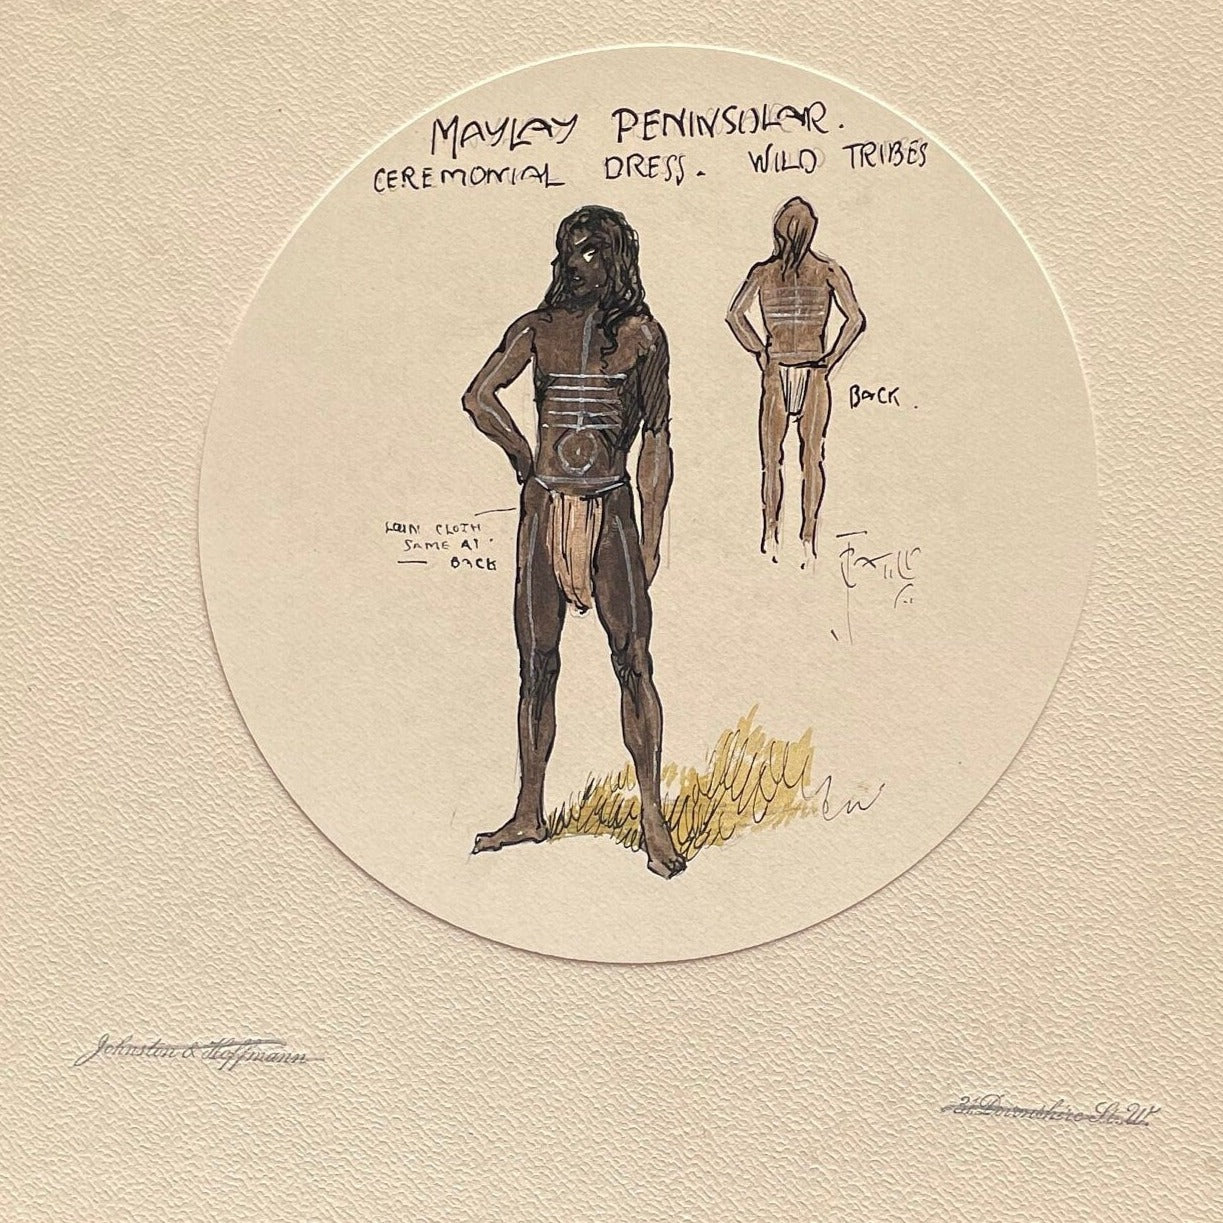 MAYLAY PENINSULAR.
CEREMONIAL DRESS. WILD TRIBES
BACK.
LOIN CLOTH
SAME AT
— BACK
Johnston & Hoffmann
Devonshire St. W.